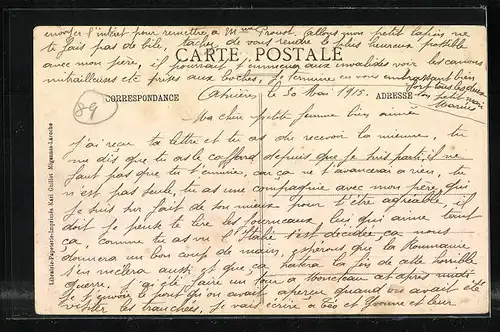 envoyer l'intert pour remettre à Mme Proust. Allons mon petit lapin ne
te fais pas de bile, tache de vous rendre le plus heureux possible
avec mon père, il pourrait t'emmener aux invalides voir les canons
mitrailleuses etc prises aux boches, je termine en vous embrassant bien
fort tous les deux
ton petit mari
Marius
CARTE POSTALE
89
CORRESPONDANCE
ADRESSE
le 30 Mai 1915.
Ma chère petite femme bien aimée
J'ai reçu ta lettre et tu as du recevoir la mienne, tu
me dis que tu as le cafford depuis que je suis parti, il ne
faut pas que tu t'ennuie, car ça ne t'avancera a rien, tu
n'est pas seule, tu as une compagnie avec mon père, qui
je suis sur fait de son mieux pour t'être agréable, il
doit je pense te lire les journeaux, lui qui aime tant
ça, comme tu as vu l'Italie s'est décidée ça nous
donnera un bon coup de main, espérons que la Roumanie
s'en mèlera aussi et que ça hatera la fin de cette terrible
guerre, j'ai été faire un tour a Montceau et après midi
je t'envoie le port qu'on avait aperçu quand on avait été
visiter les tranchées, je vais écrire à Téo et Yvonne et leur
Librairie-Papeterie-Imprimerie Karl Guillot, Migennes-Laroche